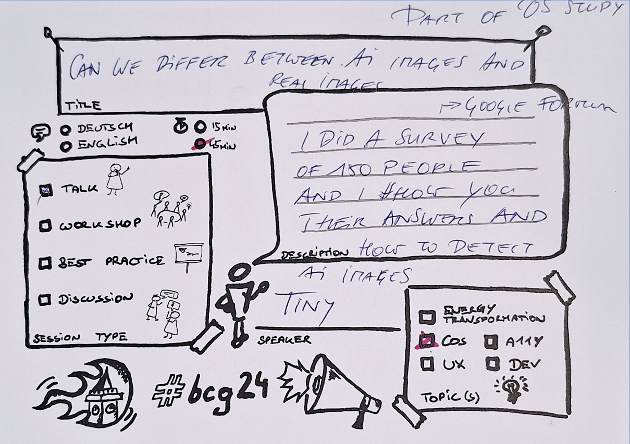 PART OF COS STUDY
CAN WE DIFFER BETWEEN AI IMAGES AND
REAL IMAGES
TITLE
→ GOOGLE FORUM
DEUTSCH
15 MIN
ENGLISH
45 MIN
I DID A SURVEY
OF 150 PEOPLE
AND I SHOW YOU
THEIR ANSWERS AND
DESCRIPTION HOW TO DETECT
AI IMAGES
TALK
WORKSHOP
BEST PRACTICE
DISCUSSION
SESSION TYPE
TINY
SPEAKER
ENERGY
TRANSFORMATION
COS A11Y
UX DEV
TOPIC(S)
#bcg24